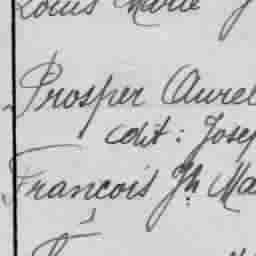 Louis Marie J
Prosper Aurel
dit: Josep
François Jh Ma